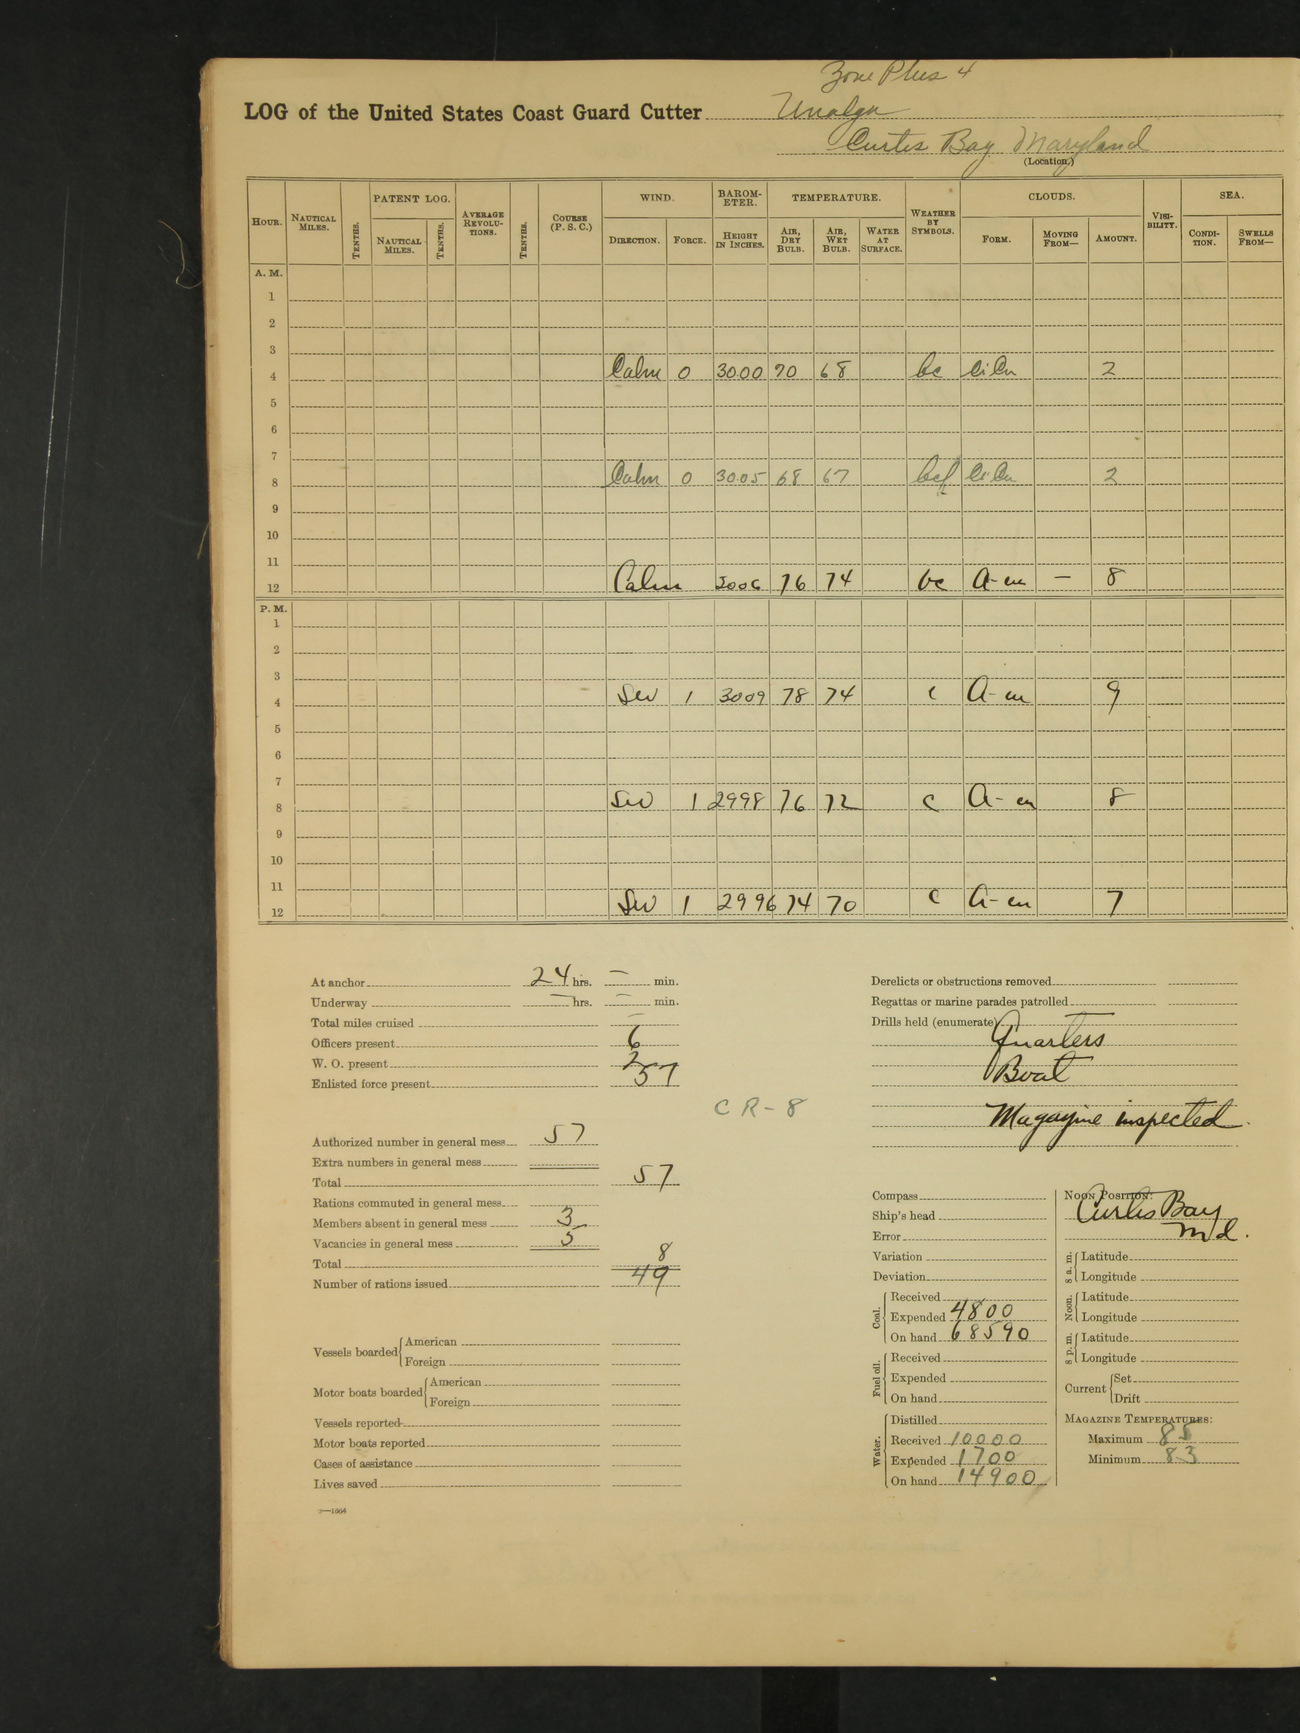 Zone Plus 4
LOG of the United States Coast Guard Cutter Unalga
Curtis Bay Maryland
(Location.)
HOUR. NAUTICAL MILES. TENTHS. PATENT LOG. NAUTICAL MILES. TENTHS. AVERAGE REVOLUTIONS. TENTHS. COURSE (P. S. C.) WIND. DIRECTION. FORCE. BAROMETER. HEIGHT IN INCHES. TEMPERATURE. AIR, DRY BULB. AIR, WET BULB. WATER AT SURFACE. WEATHER BY SYMBOLS. CLOUDS. FORM. MOVING FROM— AMOUNT. VISIBILITY. SEA. CONDITION. SWELLS FROM—
A. M.
1
2
3
4 Calm 0 3000 70 68 bc CiCu 2
5
6
7
8 Calm 0 30.05 68 67 bcf CiCu 2
9
10
11
12 Calm 3006 76 74 bc A-cu — 8
P. M.
1
2
3
4 SW 1 3009 78 74 c A-cu 9
5
6
7
8 SW 1 2998 76 72 c A-cu 8
9
10
11
12 SW 1 2996 74 70 c A-cu 7
At anchor 24 hrs. — min.
Underway — hrs. — min.
Total miles cruised —
Officers present 6
W. O. present 2
Enlisted force present 57
CR-8
Authorized number in general mess 57
Extra numbers in general mess
Total 57
Rations commuted in general mess
Members absent in general mess 3
Vacancies in general mess 5
Total 8
Number of rations issued 49
Vessels boarded American
Foreign
Motor boats boarded American
Foreign
Vessels reported
Motor boats reported
Cases of assistance
Lives saved
2—1664
Derelicts or obstructions removed
Regattas or marine parades patrolled
Drills held (enumerate)
Quarters
Boat
Magazine inspected.
Compass
Ship's head
Error
Variation
Deviation
Coal. Received
Expended 4800
On hand 68590
Fuel oil. Received
Expended
On hand
Water. Distilled
Received 10000
Expended 1700
On hand 14900
NOON POSITION:
Curtis Bay
Md.
8 a. m. Latitude
Longitude
Noon. Latitude
Longitude
8 p. m. Latitude
Longitude
Current Set
Drift
MAGAZINE TEMPERATURES:
Maximum 85
Minimum 83